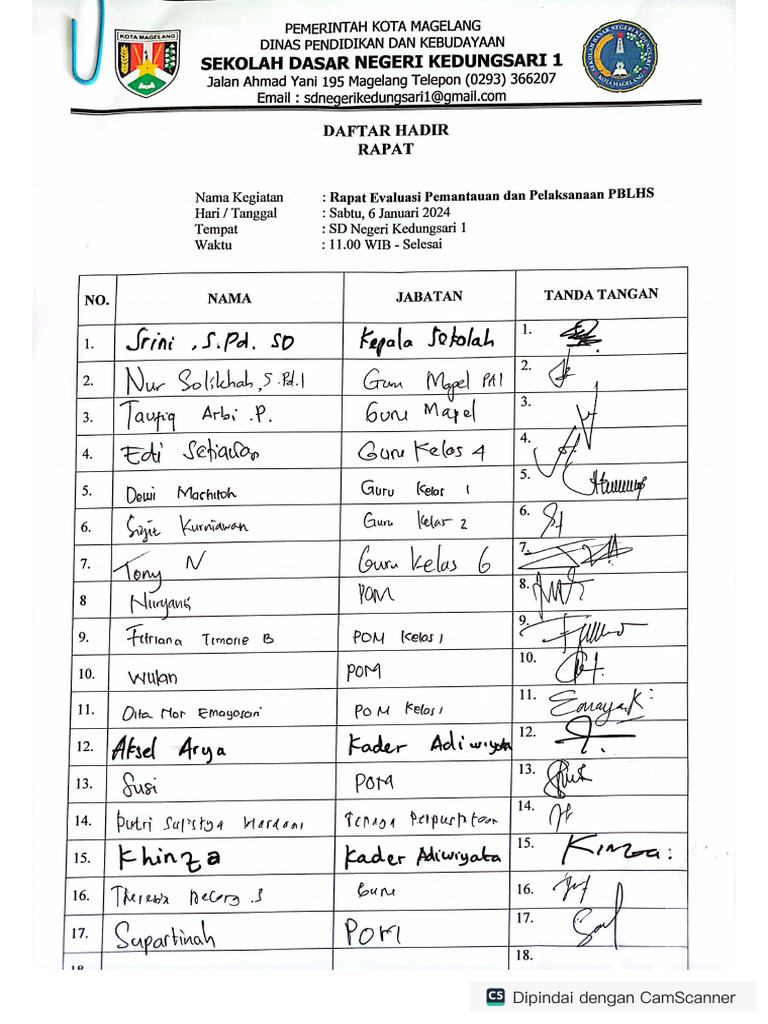 KOTA MAGELANG
PEMERINTAH KOTA MAGELANG
DINAS PENDIDIKAN DAN KEBUDAYAAN
SEKOLAH DASAR NEGERI KEDUNGSARI 1
Jalan Ahmad Yani 195 Magelang Telepon (0293) 366207
Email : sdnegerikedungsari1@gmail.com
SEKOLAH DASAR NEGERI KEDUNGSARI 1
KOTA MAGELANG
DAFTAR HADIR
RAPAT
Nama Kegiatan : Rapat Evaluasi Pemantauan dan Pelaksanaan PBLHS
Hari / Tanggal : Sabtu, 6 Januari 2024
Tempat : SD Negeri Kedungsari 1
Waktu : 11.00 WIB - Selesai
NO. NAMA JABATAN TANDA TANGAN
1. Srini , S.Pd. SD Kepala Sekolah 1.
2. Nur Solikhah, S.Pd.I Guru Mapel PAI 2.
3. Taufiq Arbi .P. Guru Mapel 3.
4. Edi Setiawan Guru Kelas 4 4.
5. Dewi Machitoh Guru Kelas 1 5.
6. Sigit Kurniawan Guru Kelas 2 6.
7. Tony N Guru Kelas 6 7.
8 Nuryanti POM 8.
9. Fitriana Timorie B POM Kelas 1 9.
10. Wulan POM 10.
11. Dita Nor Emayasari POM Kelas 1 11. Emaya.K
12. Aksel Arya Kader Adiwiyata 12.
13. Susi POM 13.
14. Putri Sulistya Wardani Tenaga 14.
15. Khinza Kader Adiwiyata 15. Kinza
16. Theresia S Guru 16.
17. Supartinah POM 17.
18. 18.
CS Dipindai dengan CamScanner